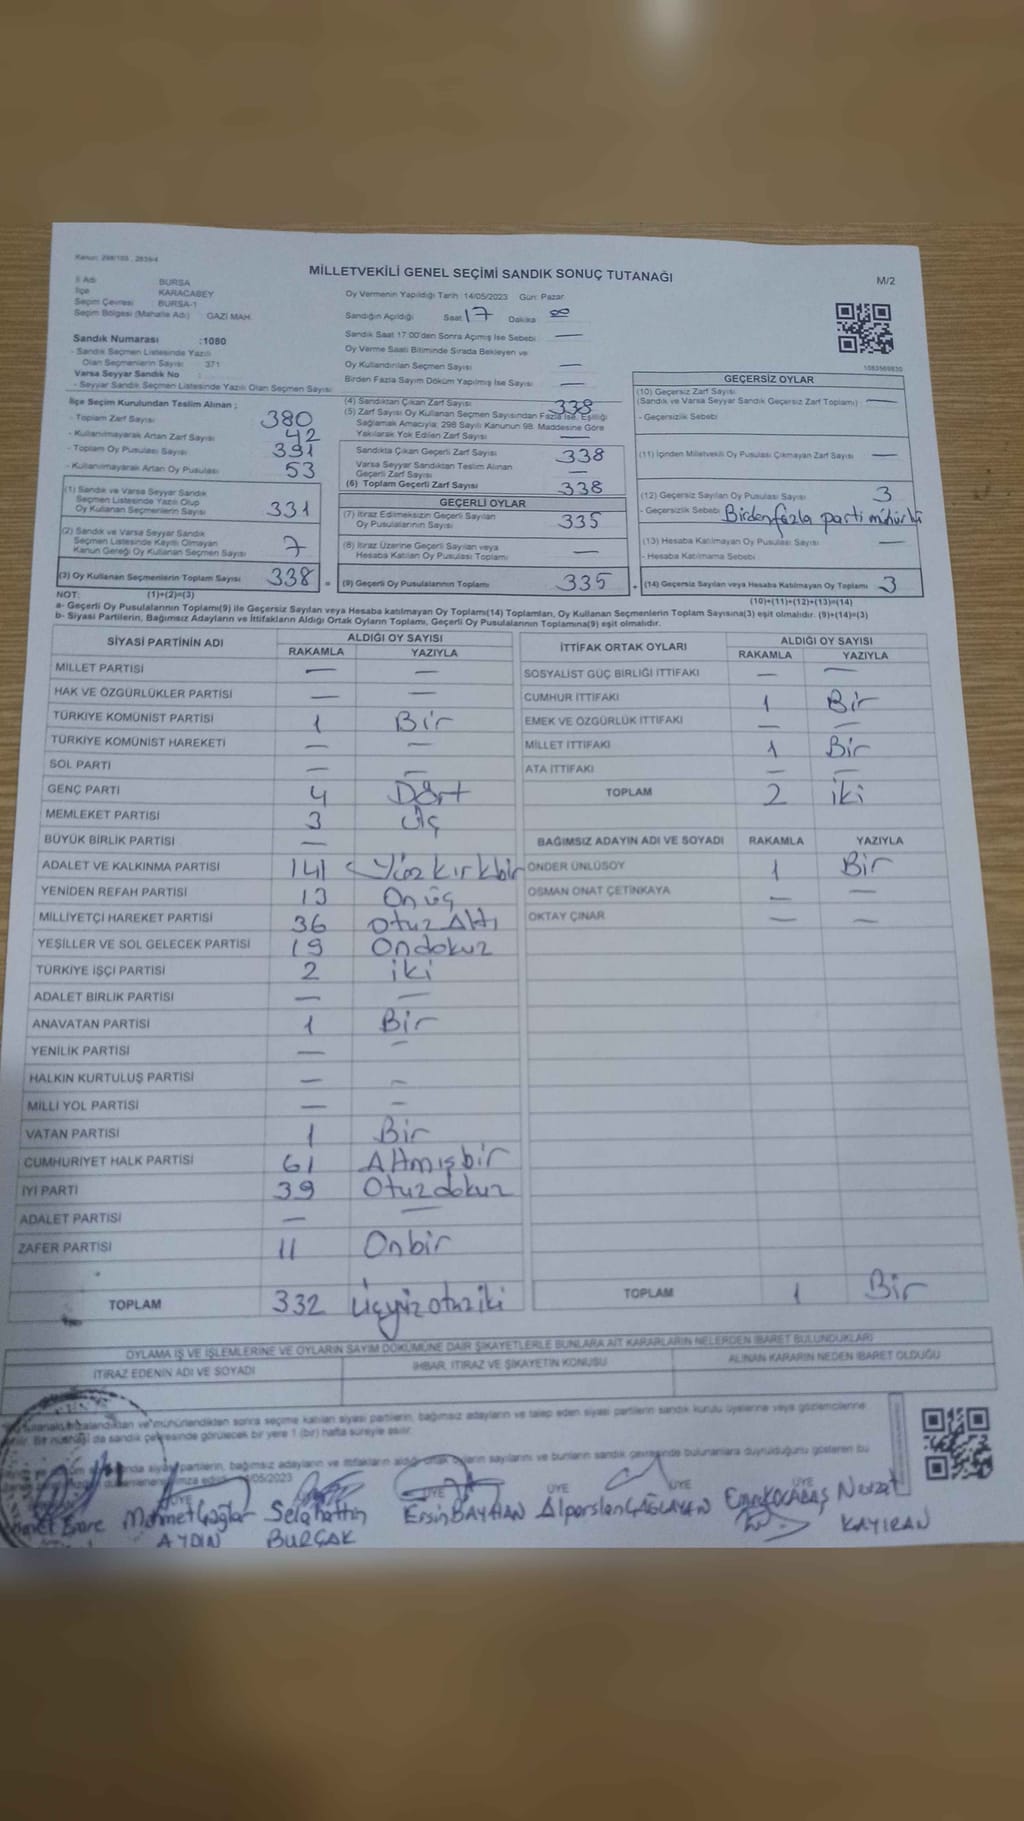 Kanun: 298/105 , 2839/4
MİLLETVEKİLİ GENEL SEÇİMİ SANDIK SONUÇ TUTANAĞI
M/2
İl Adı BURSA
İlçe KARACABEY
Seçim Çevresi BURSA-1
Seçim Bölgesi (Mahalle Adı) GAZİ MAH.
Sandık Numarası :1080
- Sandık Seçmen Listesinde Yazılı
Olan Seçmenlerin Sayısı 371
Varsa Seyyar Sandık No
- Seyyar Sandık Seçmen Listesinde Yazılı Olan Seçmen Sayısı
Oy Vermenin Yapıldığı Tarih :14/05/2023 Gün: Pazar
Sandığın Açıldığı Saat 17 Dakika 00
Sandık Saat 17:00'den Sonra Açımış İse Sebebi —
Oy Verme Saati Bitiminde Sırada Bekleyen ve
Oy Kullandırılan Seçmen Sayısı —
Birden Fazla Sayım Döküm Yapılmış İse Sayısı —
İlçe Seçim Kurulundan Teslim Alınan ;
- Toplam Zarf Sayısı 380
- Kullanılmayarak Artan Zarf Sayısı 42
- Toplam Oy Pusulası Sayısı 391
- Kullanılmayarak Artan Oy Pusulası 53
(1) Sandık ve Varsa Seyyar Sandık
Seçmen Listesinde Yazılı Olup
Oy Kullanan Seçmenlerin Sayısı 331
(2) Sandık ve Varsa Seyyar Sandık
Seçmen Listesinde Kayıtlı Olmayan
Kanun Gereği Oy Kullanan Seçmen Sayısı 7
(3) Oy Kullanan Seçmenlerin Toplam Sayısı 338 =
(4) Sandıktan Çıkan Zarf Sayısı 338
(5) Zarf Sayısı Oy Kullanan Seçmen Sayısından Fazla ise, Eşitliği
Sağlamak Amacıyla; 298 Sayılı Kanunun 98. Maddesine Göre
Yakılarak Yok Edilen Zarf Sayısı —
Sandıkta Çıkan Geçerli Zarf Sayısı 338
Varsa Seyyar Sandıktan Teslim Alınan
Geçerli Zarf Sayısı —
(6) Toplam Geçerli Zarf Sayısı 338
GEÇERLİ OYLAR
(7) İtiraz Edilmeksizin Geçerli Sayılan
Oy Pusulalarının Sayısı 335
(8) İtiraz Üzerine Geçerli Sayılan veya
Hesaba Katılan Oy Pusulası Toplamı —
(9) Geçerli Oy Pusulalarının Toplamı 335 +
1083569830
GEÇERSİZ OYLAR
(10) Geçersiz Zarf Sayısı
(Sandık ve Varsa Seyyar Sandık Geçersiz Zarf Toplamı) —
- Geçersizlik Sebebi
(11) İçinden Milletvekili Oy Pusulası Çıkmayan Zarf Sayısı —
(12) Geçersiz Sayılan Oy Pusulası Sayısı 3
- Geçersizlik Sebebi Birden fazla parti mühürlü
(13) Hesaba Katılmayan Oy Pusulası Sayısı —
- Hesaba Katılmama Sebebi
(14) Geçersiz Sayılan veya Hesaba Katılmayan Oy Toplamı 3
NOT: (1)+(2)=(3) (10)+(11)+(12)+(13)=(14)
a- Geçerli Oy Pusulalarının Toplamı(9) ile Geçersiz Sayılan veya Hesaba katılmayan Oy Toplamı(14) Toplamları, Oy Kullanan Seçmenlerin Toplam Sayısına(3) eşit olmalıdır. (9)+(14)=(3)
b- Siyasi Partilerin, Bağımsız Adayların ve İttifakların Aldığı Ortak Oyların Toplamı, Geçerli Oy Pusulalarının Toplamına(9) eşit olmalıdır.
SİYASİ PARTİNİN ADI ALDIĞI OY SAYISI
RAKAMLA YAZIYLA
MİLLET PARTİSİ — —
HAK VE ÖZGÜRLÜKLER PARTİSİ — —
TÜRKİYE KOMÜNİST PARTİSİ 1 Bir
TÜRKİYE KOMÜNİST HAREKETİ — —
SOL PARTİ — —
GENÇ PARTİ 4 Dört
MEMLEKET PARTİSİ 3 Üç
BÜYÜK BİRLİK PARTİSİ —
ADALET VE KALKINMA PARTİSİ 141 Yüz kırkbir
YENİDEN REFAH PARTİSİ 13 Onüç
MİLLİYETÇİ HAREKET PARTİSİ 36 Otuz Altı
YEŞİLLER VE SOL GELECEK PARTİSİ 19 Ondokuz
TÜRKİYE İŞÇİ PARTİSİ 2 iki
ADALET BİRLİK PARTİSİ — —
ANAVATAN PARTİSİ 1 Bir
YENİLİK PARTİSİ — —
HALKIN KURTULUŞ PARTİSİ — —
MİLLİ YOL PARTİSİ — —
VATAN PARTİSİ 1 Bir
CUMHURİYET HALK PARTİSİ 61 Altmışbir
İYİ PARTİ 39 Otuzdokuz
ADALET PARTİSİ — —
ZAFER PARTİSİ 11 Onbir
TOPLAM 332 Üçyüz otuz iki
İTTİFAK ORTAK OYLARI ALDIĞI OY SAYISI
RAKAMLA YAZIYLA
SOSYALİST GÜÇ BİRLİĞİ İTTİFAKI — —
CUMHUR İTTİFAKI 1 Bir
EMEK VE ÖZGÜRLÜK İTTİFAKI — —
MİLLET İTTİFAKI 1 Bir
ATA İTTİFAKI — —
TOPLAM 2 iki
BAĞIMSIZ ADAYIN ADI VE SOYADI RAKAMLA YAZIYLA
ÖNDER ÜNLÜSOY 1 Bir
OSMAN ONAT ÇETİNKAYA — —
OKTAY ÇINAR — —
TOPLAM 1 Bir
OYLAMA İŞ VE İŞLEMLERİNE VE OYLARIN SAYIM DÖKÜMÜNE DAİR ŞİKAYETLERLE BUNLARA AİT KARARLARIN NELERDEN İBARET BULUNDUKLARI
İTİRAZ EDENİN ADI VE SOYADI İHBAR, İTİRAZ VE ŞİKAYETİN KONUSU ALINAN KARARIN NEDEN İBARET OLDUĞU
mühürlendikten sonra seçime katılan siyasi partilerin, bağımsız adayların ve talep eden siyasi partilerin sandık kurulu üyelerine veya gözlemcilerine
da sandık çevresinde görülecek bir yere 1 (bir) hafta süreyle asılır.
siyasi partilerin, bağımsız adayların ve ittifakların aldığı ortak oyların sayılarını ve bunların sandık çevresinde bulunanlara duyrulduğunu gösteren bu
/05/2023
ÜYE ÜYE ÜYE ÜYE ÜYE
Emre Mehmet Çağlar Selahattin Ersin BAYHAN Alparslan ÇAĞLAYAN Emin KOCABAŞ Nevzat
AYDIN BURÇAK KAYIRAN